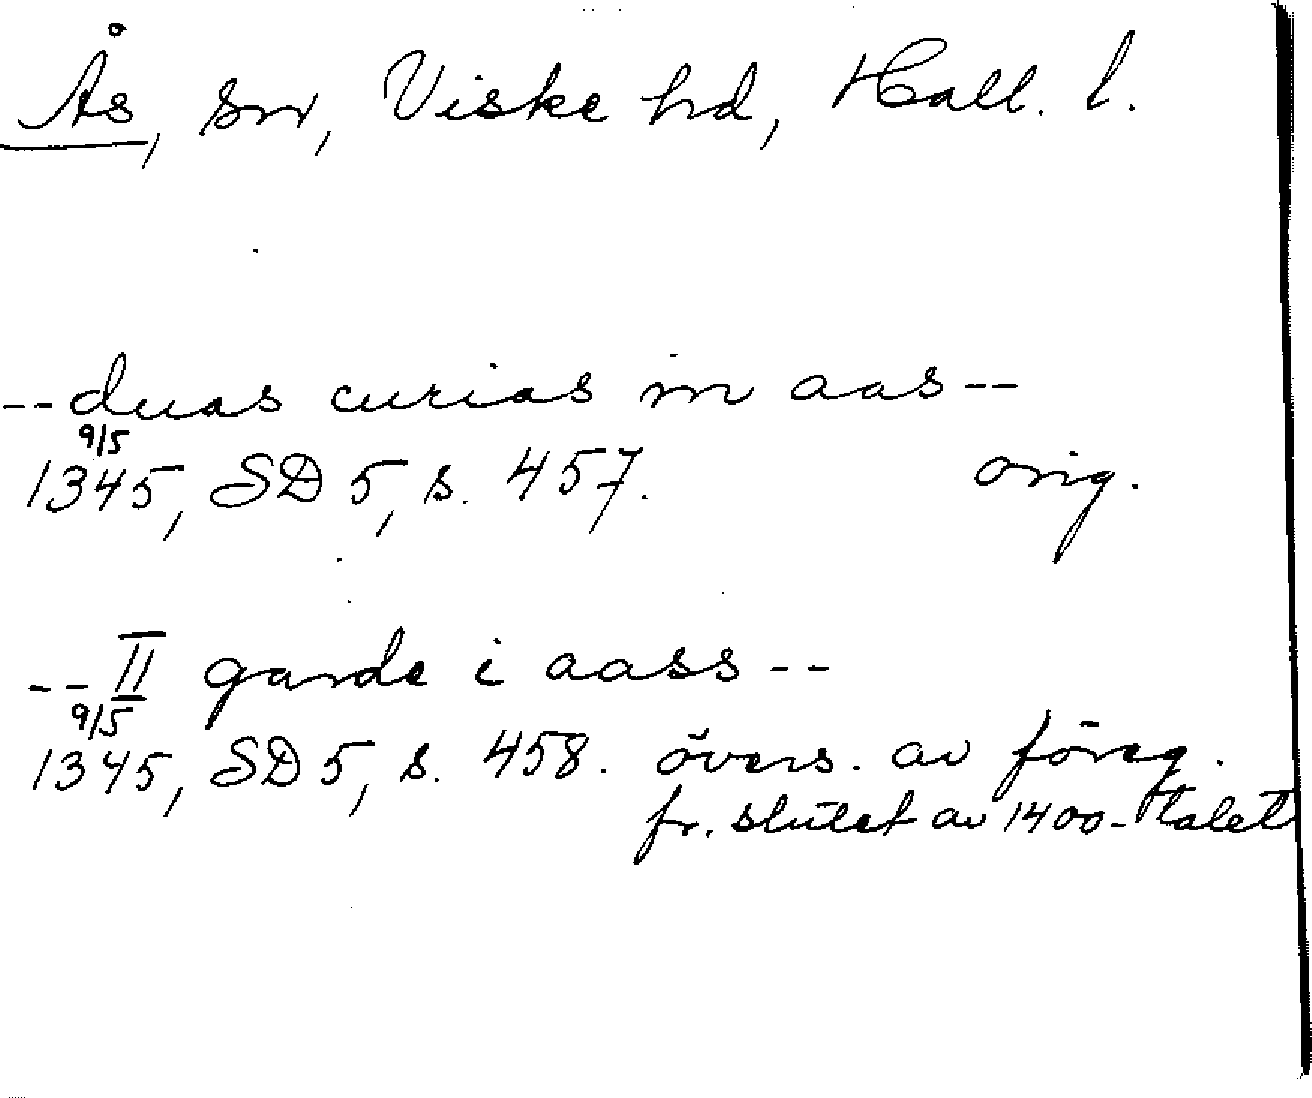 Ås, sn, Viske hd, Hall. l.
-- duas curias in aas --
9/5
1345, SD 5, s. 457. orig.
-- II garde i aass --
9/5
1345, SD 5, s. 458. övers. av föreg.
fr. slutet av 1400-talet